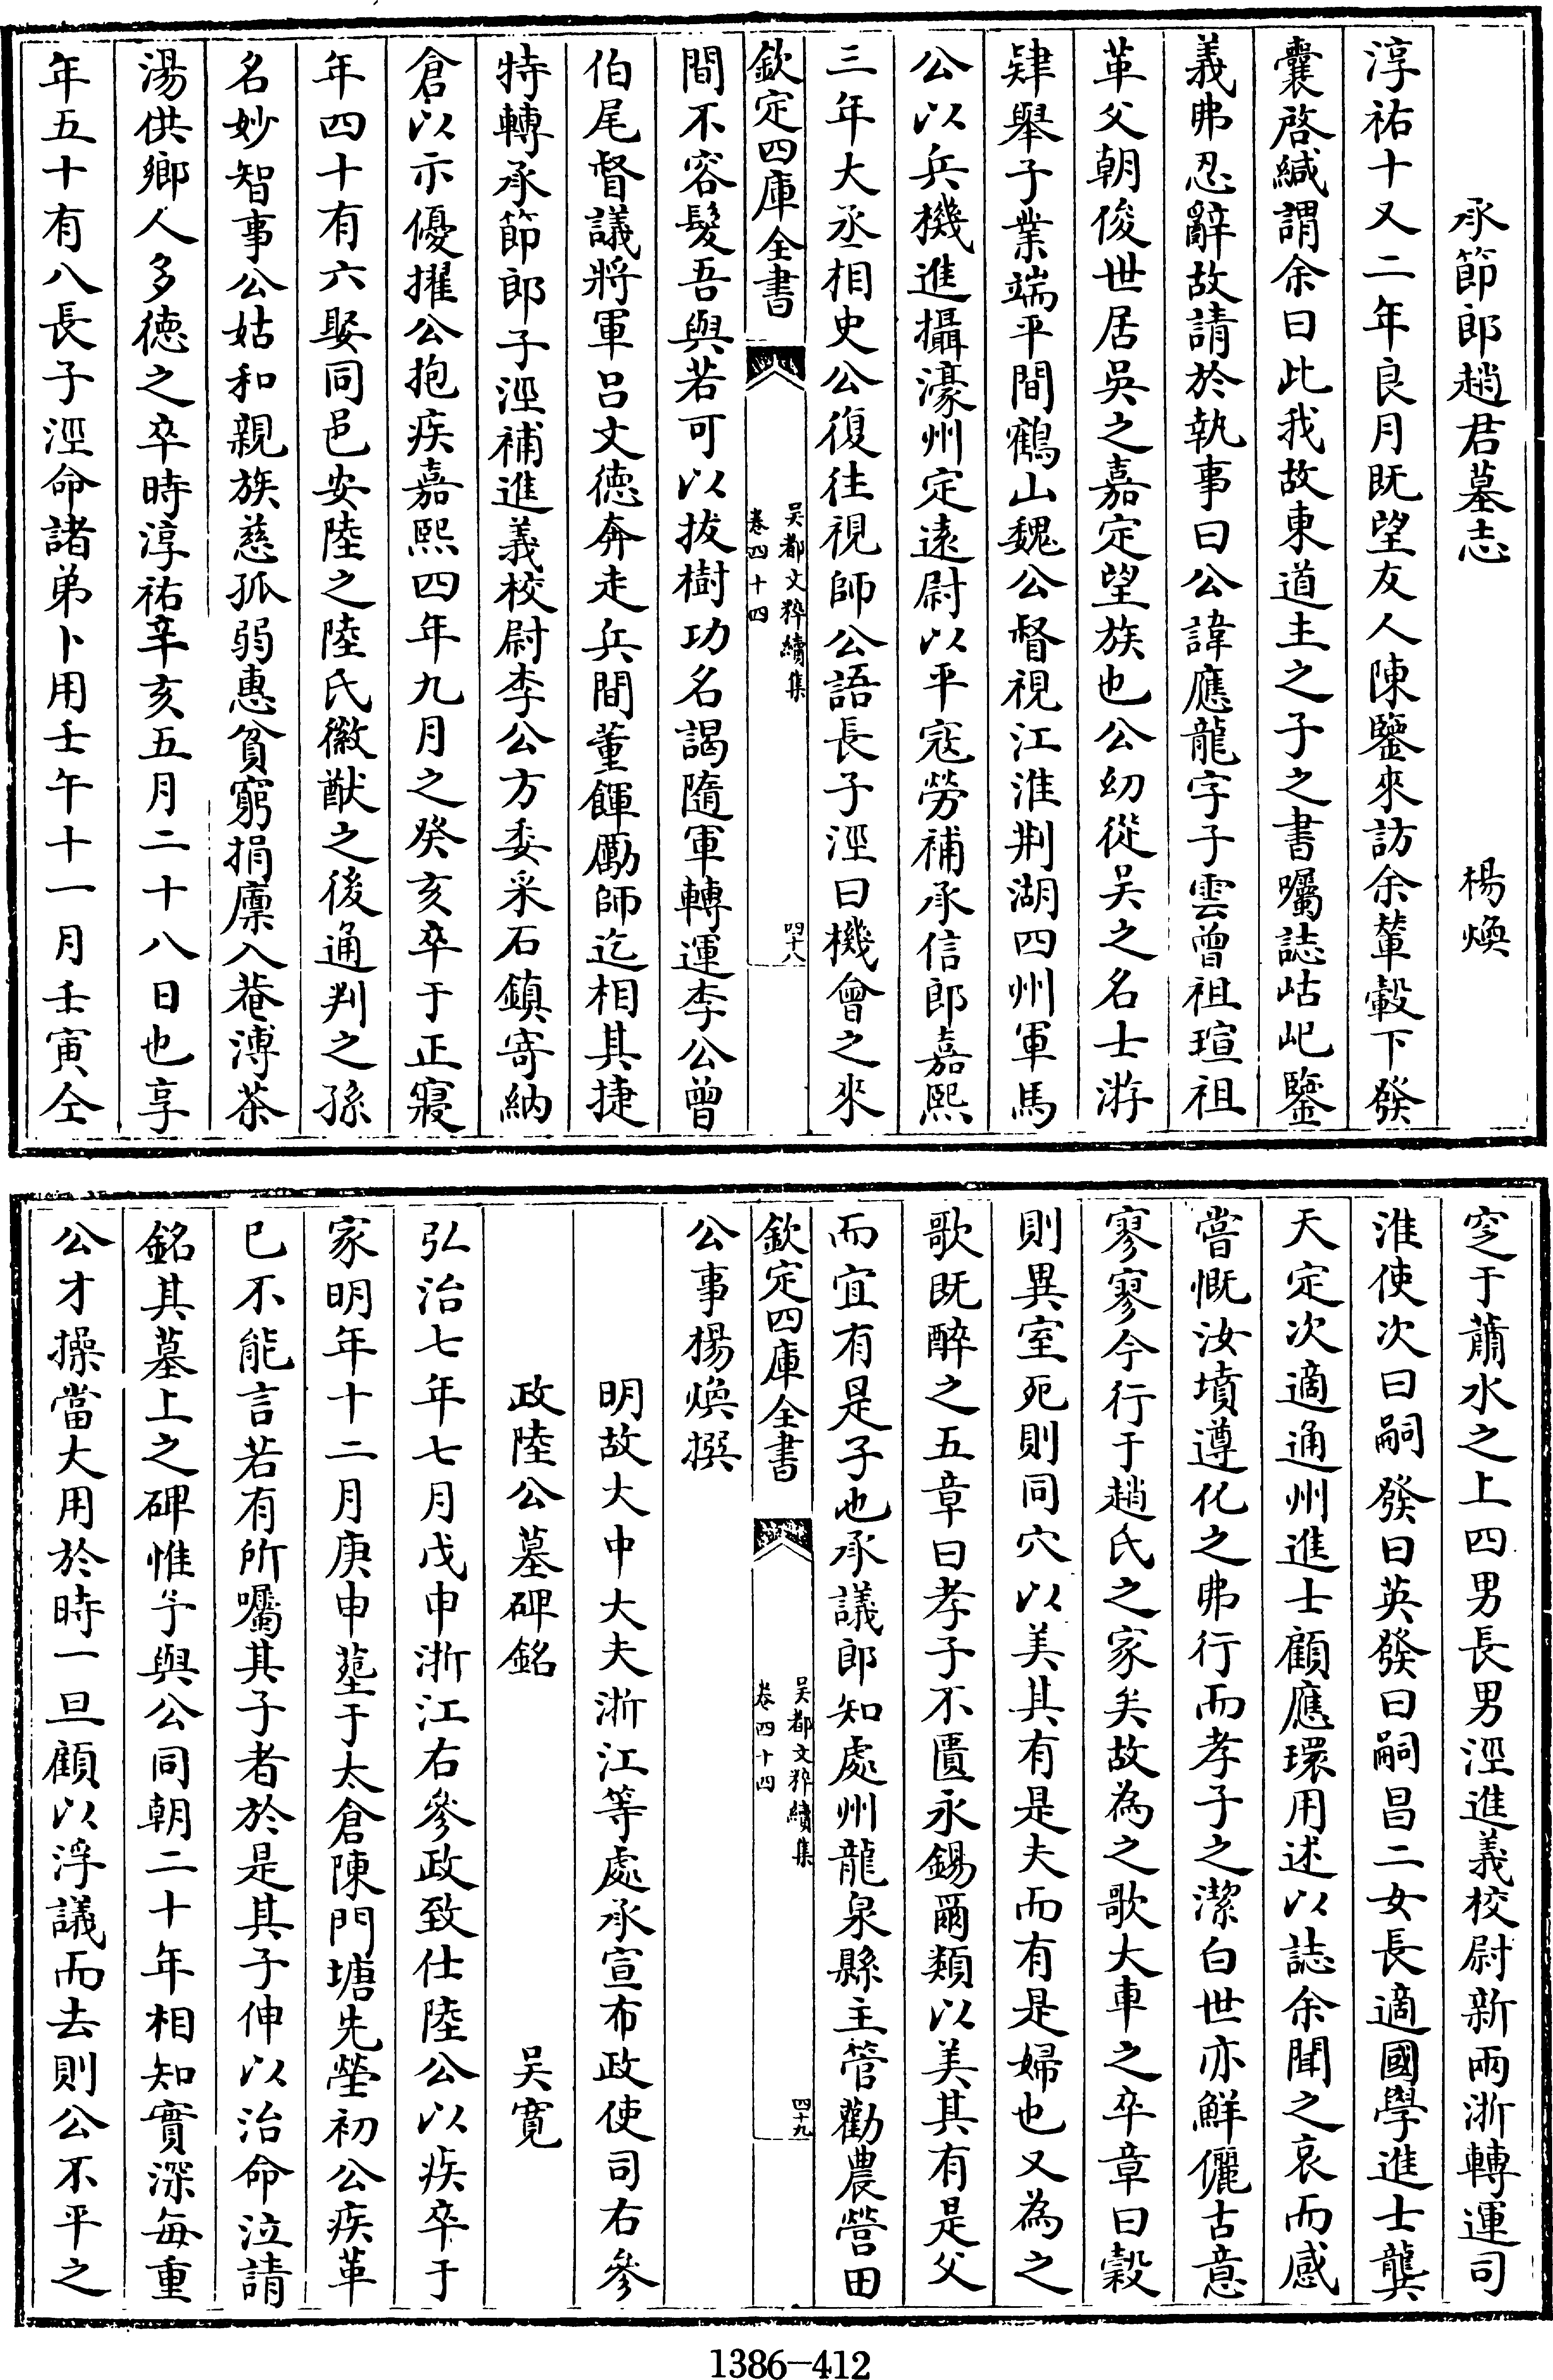 承節郎趙君墓志　楊煥
淳祐十又二年良月既望友人陳鑒來訪余輦轂下發
囊啓緘謂余曰此我故東道主之子之書囑誌岵屺鑒
義弗忍辭故請於執事曰公諱應龍字子雲曾祖瑄祖
革父朝俊世居吳之嘉定望族也公幼從吳之名士游
肄舉子業端平間鶴山魏公督視江淮荆湖四州軍馬
公以兵機進攝濠州定遠尉以平寇勞補承信郎嘉熙
三年大丞相史公復往視師公語長子涇曰機會之來
欽定四庫全書
吳都文粹續集
卷四十四
四十八
間不容髮吾與若可以拔樹功名謁隨軍轉運李公曾
伯尾督議將軍呂文德奔走兵間董餫勵師迄相其捷
特轉承節郎子涇補進義校尉李公方委采石鎮寄納
倉以示優擢公抱疾嘉熙四年九月之癸亥卒于正寢
年四十有六娶同邑安陸之陸氏徽猷之後通判之孫
名妙智事公姑和親族慈孤弱惠貧窮捐廪入菴溥茶
湯供鄉人多德之卒時淳祐辛亥五月二十八日也享
年五十有八長子涇命諸弟卜用壬午十一月壬寅仝
窆于蕭水之上四男長男涇進義校尉新兩浙轉運司
淮使次曰嗣發曰英發曰嗣昌二女長適國學進士龔
天定次適通州進士顧應環用述以誌余聞之哀而感
嘗慨汝墳遵化之弗行而孝子之潔白世亦鮮儷古意
寥寥今行于趙氏之家矣故為之歌大車之卒章曰穀
則異室死則同穴以美其有是夫而有是婦也又為之
歌既醉之五章曰孝子不匱永錫爾類以美其有是父
而宜有是子也承議郎知處州龍泉縣主管勸農營田
欽定四庫全書
吳都文粹續集
卷四十四
四十九
公事楊煥撰
明故大中大夫浙江等處承宣布政使司右參
政陸公墓碑銘　吳寬
弘治七年七月戊申浙江右參政致仕陸公以疾卒于
家明年十二月庚申塟于太倉陳門塘先塋初公疾革
已不能言若有所囑其子者於是其子伸以治命泣請
銘其墓上之碑惟予與公同朝二十年相知實深每重
公才操當大用於時一旦顧以浮議而去則公不平之
1386-412